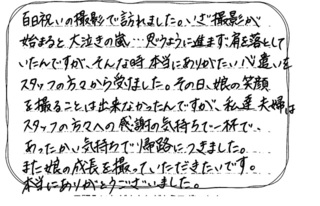 百日祝いの撮影で訪れました。いざ撮影が
始まると大泣きの嵐…思うように進まず、肩を落として
いたんですが、そんな時本当にありがたい心遣いを
スタッフの方々から受けました。その日、娘の笑顔
を撮ることは出来なかったんですが、私達夫婦は
スタッフの方々への感謝の気持ちで一杯で、
あったかい気持ちで帰路につきました。
また娘の成長を撮っていただきたいです。
本当にありがとうございました。